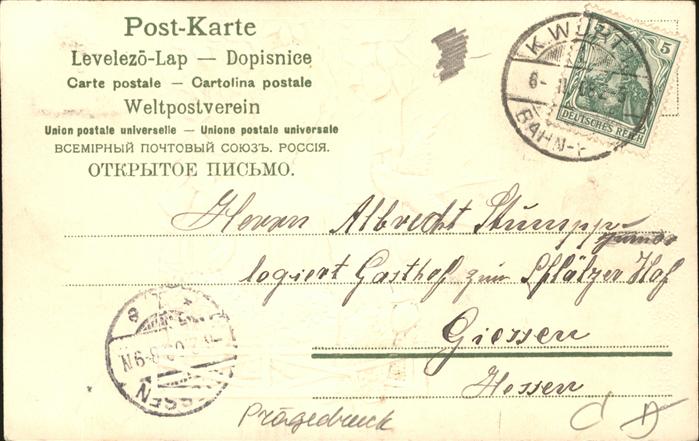 Post-Karte
Levelezö-Lap — Dopisnice
Carte postale — Cartolina postale
Weltpostverein
Union postale universelle — Unione postale universale
ВСЕМІРНЫЙ ПОЧТОВЫЙ СОЮЗЪ. РОССІЯ.
ОТКРЫТОЕ ПИСЬМО.
5
DEUTSCHES REICH
K.WÜRTT.
BAHN-
Herrn Albrecht Stumpp
junior
logiert Gasthof zum Pfläzer Hof
Giessen
Hessen
GIESSEN
Prägedruck